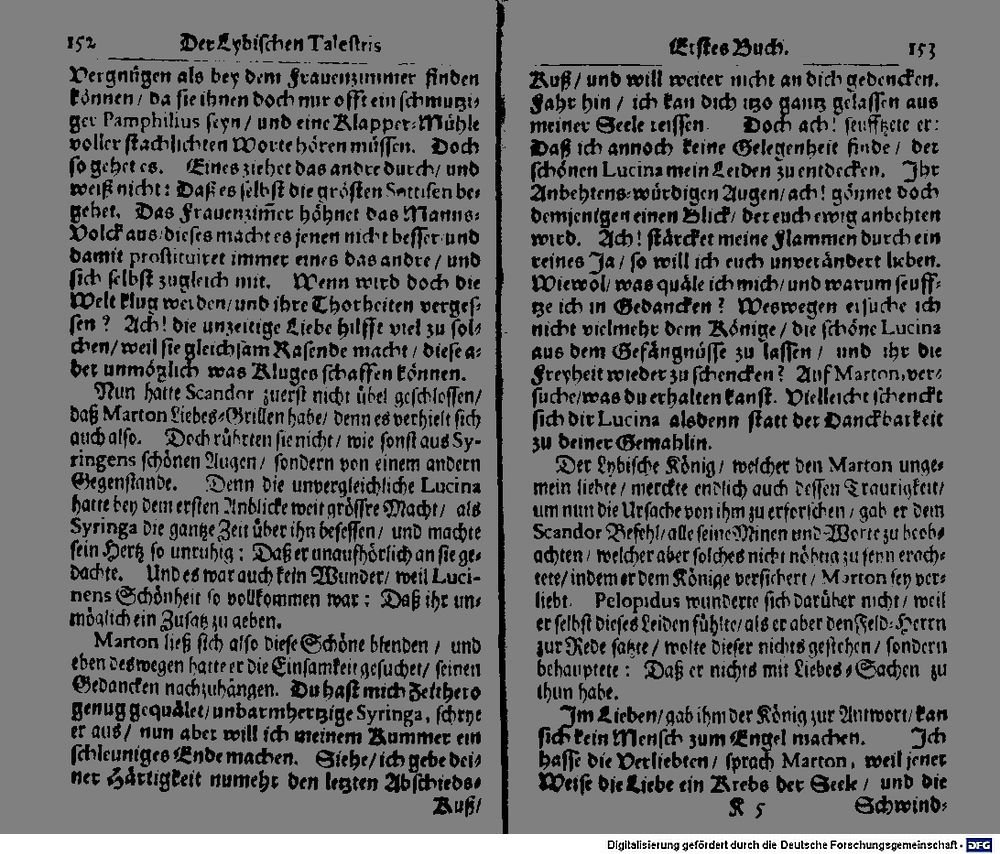 152 Der Lybischen Talestris
Vergnügen als bey dem Frauenzimmer finden
können / da sie ihnen doch nur offt ein schmutzi-
ger Pamphilius seyn / und eine Klapper-Mühle
voller stachlichten Worte hören müssen. Doch
so gehet es. Eines ziehet das andre durch / und
weiß nicht: Daß es selbst die grösten Sottisen be-
gehet. Das Frauenzim̅er höhnet das Manns-
Volck aus / dieses macht es jenen nicht besser / und
damit prostituiret immer eines das andre / und
sich selbst zugleich mit. Wenn wird doch die
Welt klug werden / und ihre Thorheiten verges-
sen? Ach! die unzeitige Liebe hilfft viel zu sol-
chen / weil sie gleichsam Rasende macht / diese a-
ber unmöglich was Kluges schaffen können.
Nun hatte Scandor zuerst nicht übel geschlossen /
daß Marton Liebes-Grillen habe / denn es verhielt sich
auch also. Doch rührten sie nicht / wie sonst aus Sy-
ringens schönen Augen / sondern von einem andern
Gegenstande. Denn die unvergleichliche Lucina
hatte bey dem ersten Anblicke weit grössre Macht / als
Syringa die gantze Zeit über ihn besessen / und machte
sein Hertz so unruhig: Daß er unaufhörlich an sie ge-
dachte. Und es war auch kein Wunder / weil Luci-
nens Schönheit so vollkommen war: Daß ihr un-
möglich ein Zusatz zu geben.
Marton ließ sich also diese Schöne blenden / und
eben deswegen hatte er die Einsamkeit gesuchet / seinen
Gedancken nachzuhängen. Du hast mich Zeithero
genug gequälet / unbarmhertzige Syringa, schrye
er aus / nun aber will ich meinem Kummer ein
schleuniges Ende machen. Siehe / ich gebe dei-
ner Härtigkeit numehr den letzten Abschieds-
Kuß /
Erstes Buch. 153
Kuß / und will weiter nicht an dich gedencken.
Fahr hin / ich kan dich itzo gantz gelassen aus
meiner Seele reissen. Doch ach! seufftzete er:
Daß ich annoch keine Gelegenheit finde / der
schönen Lucina mein Leiden zu entdecken. Ihr
Anbehtens-würdigen Augen / ach! gönnet doch
demjenigen einen Blick / der euch ewig anbehten
wird. Ach! stärcket meine Flammen durch ein
reines Ja / so will ich euch unverändert lieben.
Wiewol / was quäle ich mich / und warum seuff-
tze ich in Gedancken? Weswegen ersuche ich
nicht vielmehr dem Könige / die schöne Lucina
aus dem Gefängnüsse zu lassen / und ihr die
Freyheit wieder zu schencken? Auf Marton, ver-
suche / was du erhalten kanst. Vielleicht schenckt
sich dir Lucina alsdenn statt der Danckbarkeit
zu deiner Gemahlin.
Der Lybische König / welcher den Marton unge-
mein liebte / merckte endlich auch dessen Traurigkeit /
um nun die Ursache von ihm zu erforschen / gab er dem
Scandor Befehl / alle seine Minen und Worte zu beob-
achten / welcher aber solches nicht nöhtig zu seyn erach-
tete / indem er dem Könige versichert / Marton sey ver-
liebt. Pelopidus wunderte sich darüber nicht / weil
er selbst dieses Leiden fühlte / als er aber den Feld-Herrn
zur Rede satzte / wolte dieser nichts gestehen / sondern
behauptete: Daß er nichts mit Liebes-Sachen zu
thun habe.
Im Lieben / gab ihm der König zur Antwort / kan
sich kein Mensch zum Engel machen. Ich
hasse die Verliebten / sprach Marton, weil jener
Weise die Liebe ein Krebs der Seele / und die
K 5 Schwind-
Digitalisierung gefördert durch die Deutsche Forschungsgemeinschaft - DFG